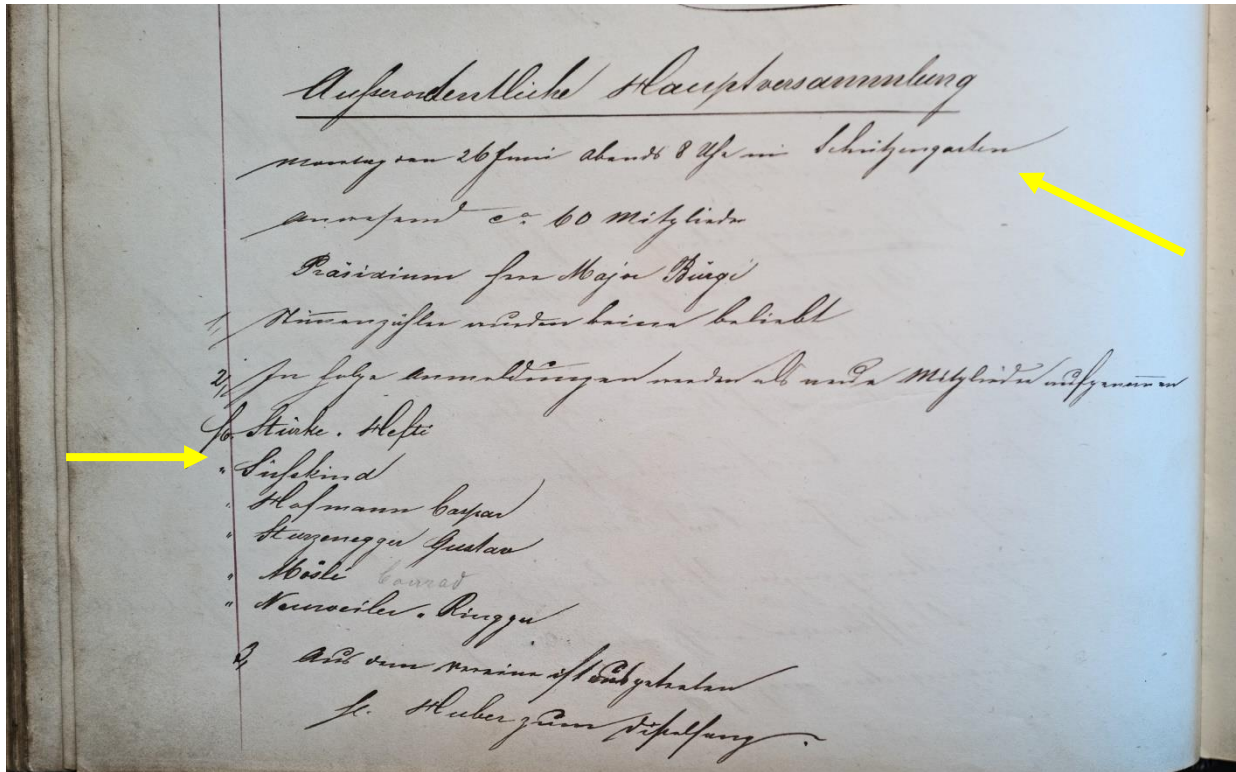 Außerordentliche Hauptversammlung
Montag den 26 Juni Abends 8 Uhr im Schützengarten
Anwesend ca 60 Mitglieder
Präsidium Herr Major Bürgi
1, Stimmenzähler wurden keine beliebt
2, In folge Anmeldungen werden als neue Mitglieder aufgenom̅en
Hr. Stürke-Hefti
" Süßkind
" Hofmann Caspar
" Sturzenegger Gustav
" Mösli Conrad
" Neuweiler-Ringger
3, Aus dem Vereine ist ausgetreten
Hr. Huber zum